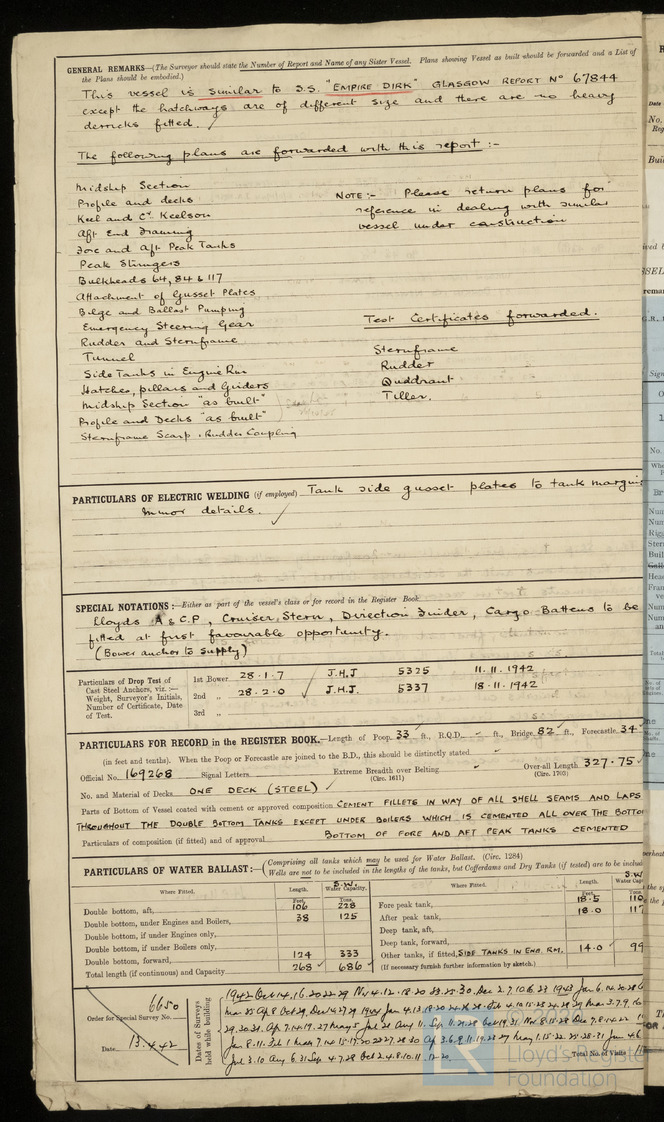 GENERAL REMARKS—(The Surveyor should state the Number of Report and Name of any Sister Vessel. Plans showing Vessel as built should be forwarded and a List of
the Plans should be embodied.)
This vessel is similar to S.S. "EMPIRE DIRK" GLASGOW REPORT No 67844
except the hatchways are of different size and there are no heavy
derricks fitted.
The following plans are forwarded with this report :-
Midship Section
Profile and decks
Keel and Cr. Keelson
Aft End Framing
Fore and Aft Peak Tanks
Peak Stringers
Bulkheads 64, 84 & 117
Attachment of Gusset Plates
Bilge and Ballast Pumping
Emergency Steering Gear
Rudder and Sternframe
Tunnel
Side Tanks in Engine Rm
Hatches, pillars and Girders
Midship Section "as built"
Profile and Decks "as built"
Sternframe Scarp & Rudder Coupling
NOTE:- Please return plans for
reference in dealing with similar
vessel under construction
Test Certificates forwarded.
Sternframe
Rudder
Quadrant
Tiller.
PARTICULARS OF ELECTRIC WELDING (if employed) Tank side gusset plates to tank margins
Minor details.
SPECIAL NOTATIONS :—Either as part of the vessel's class or for record in the Register Book.
Lloyds A & C.P, Cruiser Stern, Direction Finder, Cargo Battens to be
fitted at first favourable opportunity.
(Bower anchor to supply)
Particulars of Drop Test of
Cast Steel Anchors, viz. :—
Weight, Surveyor's Initials,
Number of Certificate, Date
of Test.
1st Bower 28.1.7 J.H.J 5325 11.11.1942
2nd „ 28.2.0 J.H.J. 5337 18.11.1942
3rd „
PARTICULARS FOR RECORD in the REGISTER BOOK.—Length of Poop 33 ft., R.Q.D. - ft., Bridge 82 ft., Forecastle 34
(in feet and tenths). When the Poop or Forecastle are joined to the B.D., this should be distinctly stated
Official No. 169268 Signal Letters Extreme Breadth over Belting Over-all Length 327.75
(Circ. 1611) (Circ. 1703)
No. and Material of Decks ONE DECK (STEEL)
Parts of Bottom of Vessel coated with cement or approved composition CEMENT FILLETS IN WAY OF ALL SHELL SEAMS AND LAPS
THROUGHOUT THE DOUBLE BOTTOM TANKS EXCEPT UNDER BOILERS WHICH IS CEMENTED ALL OVER THE BOTTO
Particulars of composition (if fitted) and of approval BOTTOM OF FORE AND AFT PEAK TANKS CEMENTED
PARTICULARS OF WATER BALLAST:—(Comprising all tanks which may be used for Water Ballast. (Circ. 1284)
Wells are not to be included in the lengths of the tanks, but Cofferdams and Dry Tanks (if tested) are to be includ
Where Fitted. Length. S.W. Water Capacity.
Feet. Tons.
Double bottom, aft, 106 228
Double bottom, under Engines and Boilers, 38 125
Double bottom, if under Engines only,
Double bottom, if under Boilers only,
Double bottom, forward, 124 333
Total length (if continuous) and Capacity 268 686
Where Fitted. Length. S.W. Water Cap
Feet. Tons.
Fore peak tank, 18.5 110
After peak tank, 18.0 117
Deep tank, aft,
Deep tank, forward,
Other tanks, if fitted, SIDE TANKS IN ENG. RM, 14.0 99
(If necessary furnish further information by sketch.)
Order for Special Survey No. 6650
Date 13.4.42
Dates of Surveys
held while building
Total No. of Visits
© 2020
Lloyd's Register
Foundation